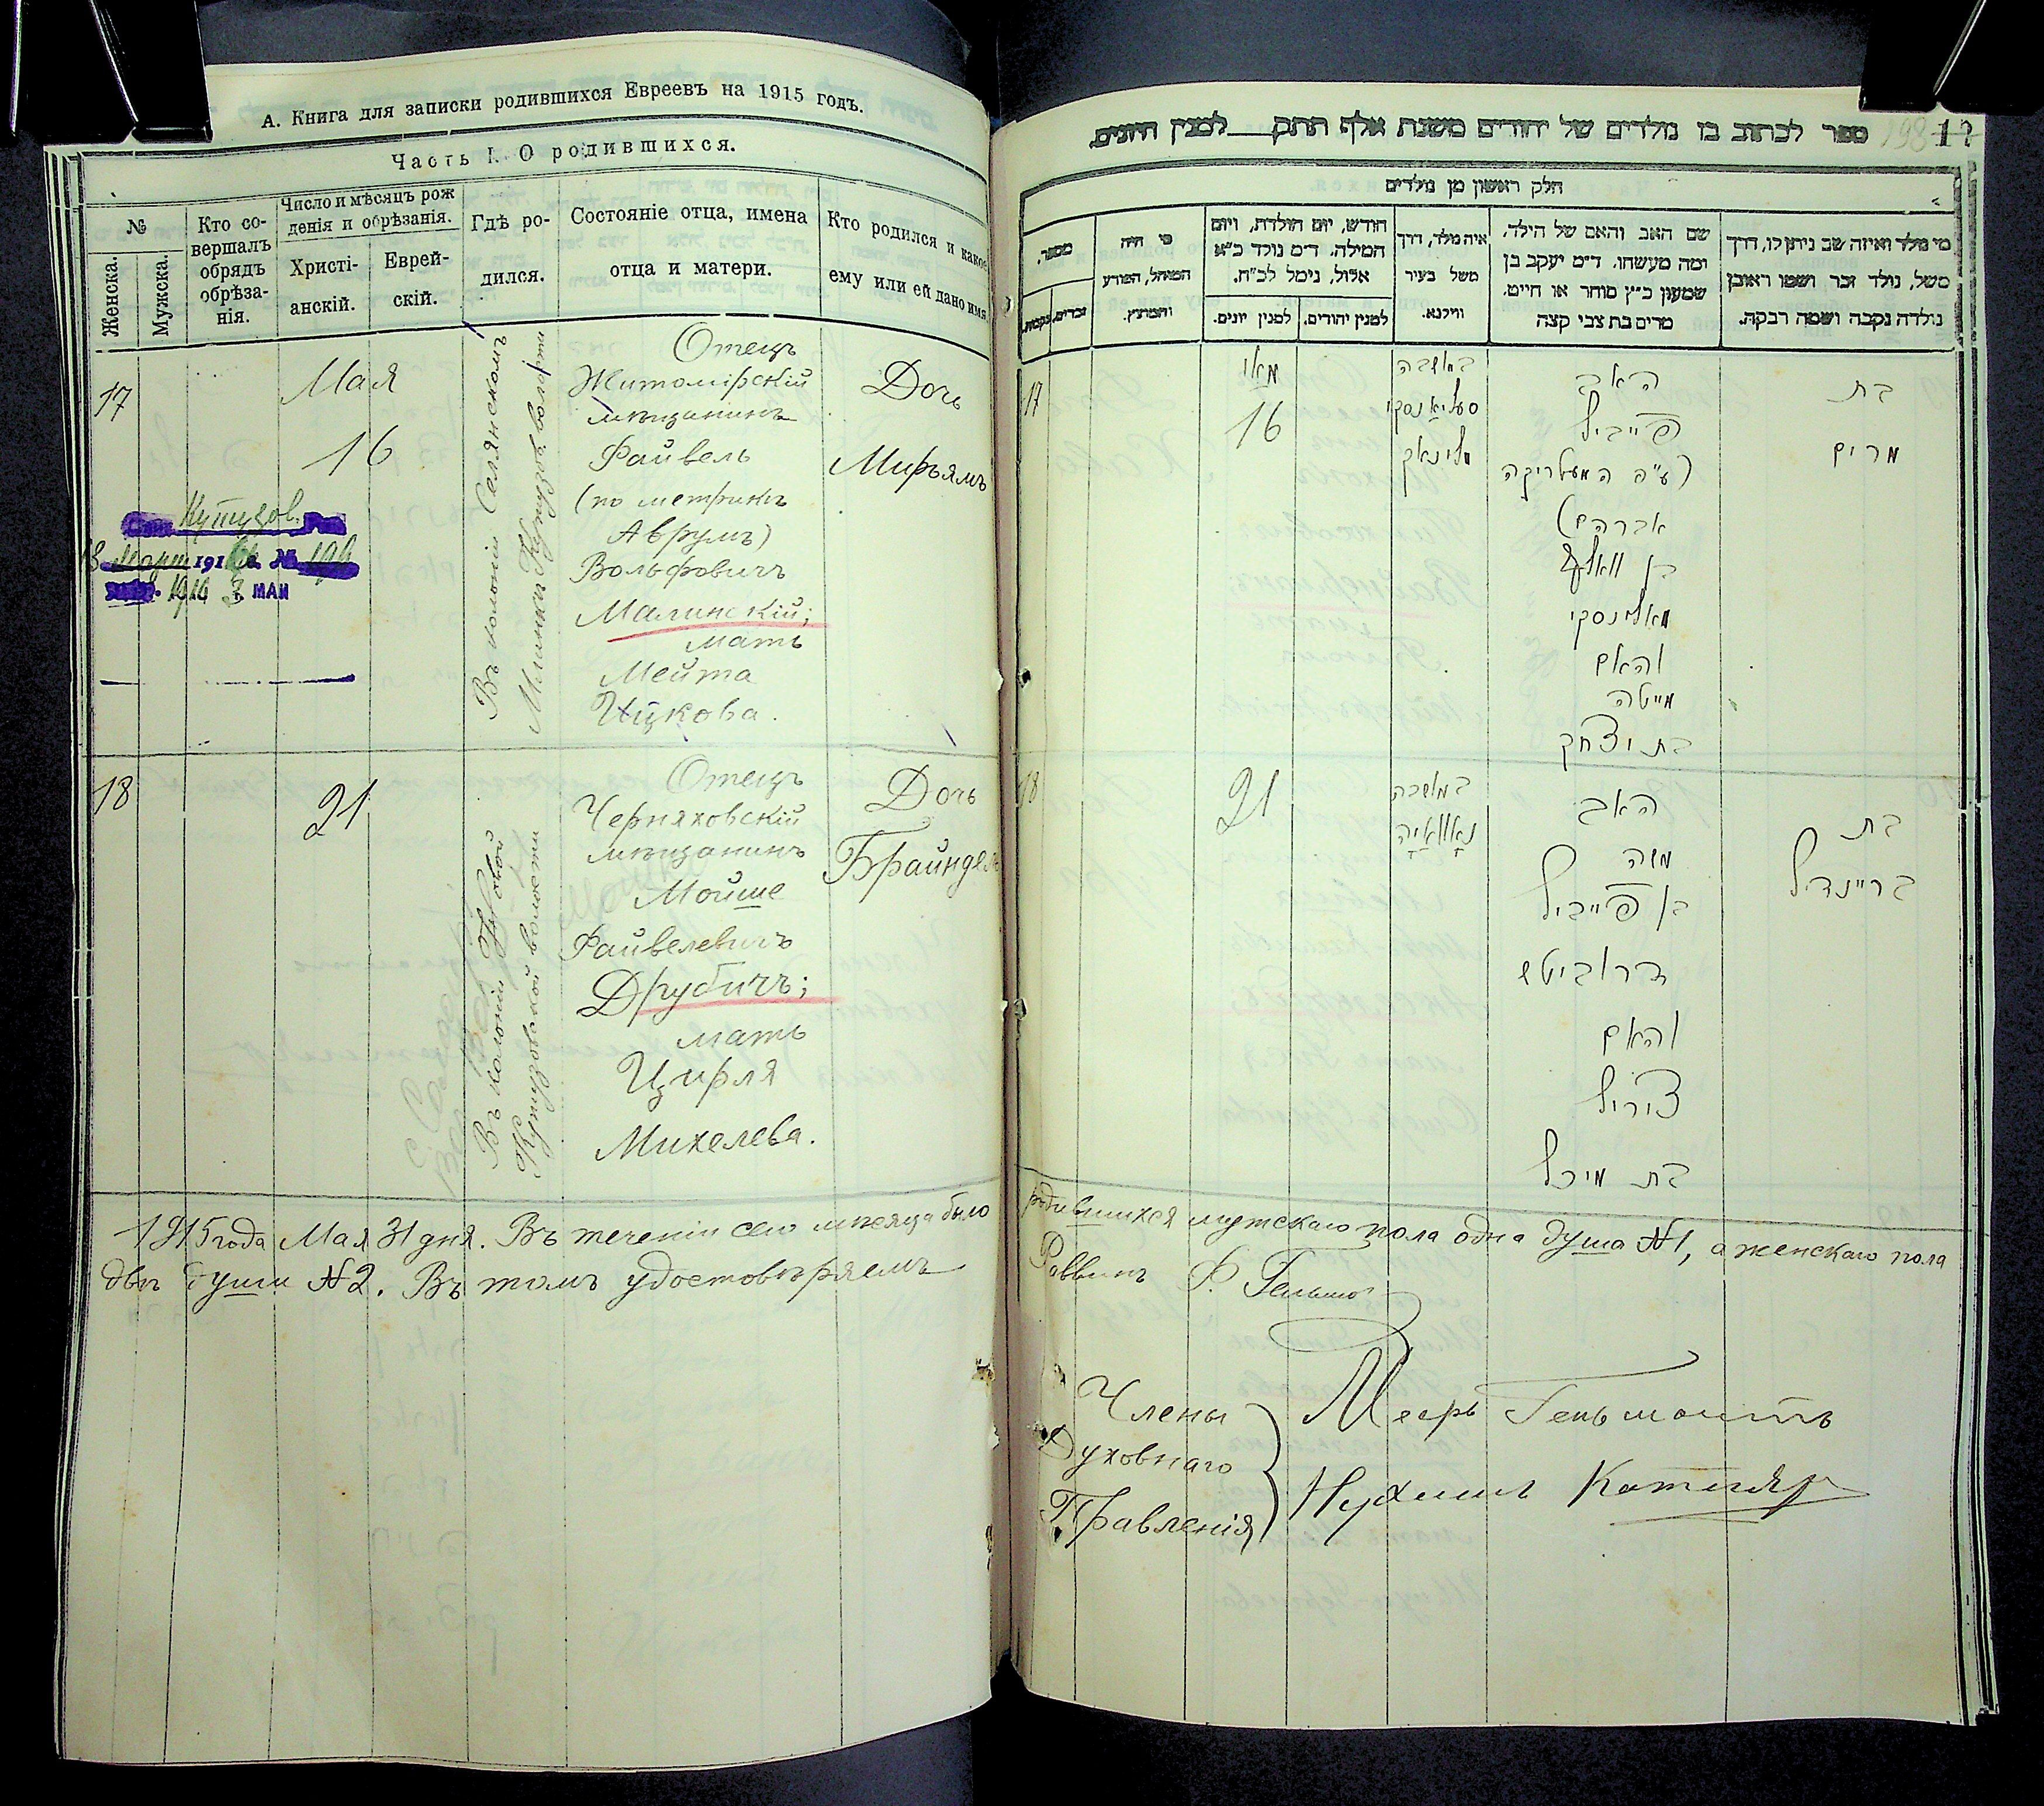 А. Книга для записки родившихся Евреевъ на 1915 годъ.
Часть I. О родившихся.
№
Женска.
Мужска.
Кто со-
вершалъ
обрядъ
обрѣза-
нія.
Число и мѣсяцъ рож
денія и обрѣзанія.
Христі-
анскій.
Еврей-
скій.
Гдѣ ро-
дился.
Состояніе отца, имена
отца и матери.
Кто родился и какое
ему или ей дано имя
17
Мая
16
Кутузов.
1916 3 МАЙ
Въ колоніи Селянскомъ
Млинки Кутузов. волости
Отецъ
Житомірскій
мѣщанинъ
Файвель
(по метрикѣ
Аврумъ)
Вольфовичъ
Малинскій;
мать
Мейта
Ицкова.
Дочь
Мирьямъ
18
21
Въ колоніи
Кутузовской волости
Отецъ
Черняховскій
мѣщанинъ
Мойше
Файвелевичъ
Друбичъ;
мать
Цирля
Михелева.
Дочь
Брайндель
1915 года Мая 31 дня. Въ теченіи сего мѣсяца было
двѣ души № 2. Въ томъ удостовѣряемъ
ספר לכתוב בו נולדים של יהודים משנת אלף תתק לפנין היונים.
198
12
חלק ראשון מן נולדים
מספר,
זכרים.
נקבות.
מי היה
המוהל, הפורע
והמוצץ.
חודש, יום הולדת, ויום
המילה. ד״מ נולד כ״א
אלול, נימל לכ״ח.
למנין יונים.
למנין יהודים.
איה נולד, דרך
משל בעיר
ווילנא.
שם האב והאם של הילד,
ומה מעשהו. ד״מ יעקב בן
שמעון כ״ץ סוחר או חייט.
מרים בת צבי קצה
מי נולד ואיזה שם ניתן לו, דרך
משל, נולד זכר ושמו ראובן
נולדה נקבה ושמה רבקה.
17
מאי
16
במושבה
סעליאנסקי
מלינאק
האב
פייביל
(ע״פ המעטריקה
אברהם)
בן וואלף
מאלינסקי
והאם
מייטה
בת יצחק
בת
מרים
18
21
במושבה
נאוואיה
האב
משה
בן פייביל
דרוביטש
והאם
ציריל
בת מיכל
בת
בריינדיל
родившихся мужскаго пола одна душа № 1, а женскаго пола
Раввинъ Ф.
Члены
Духовнаго
Правленія
Меерь
Нухимъ